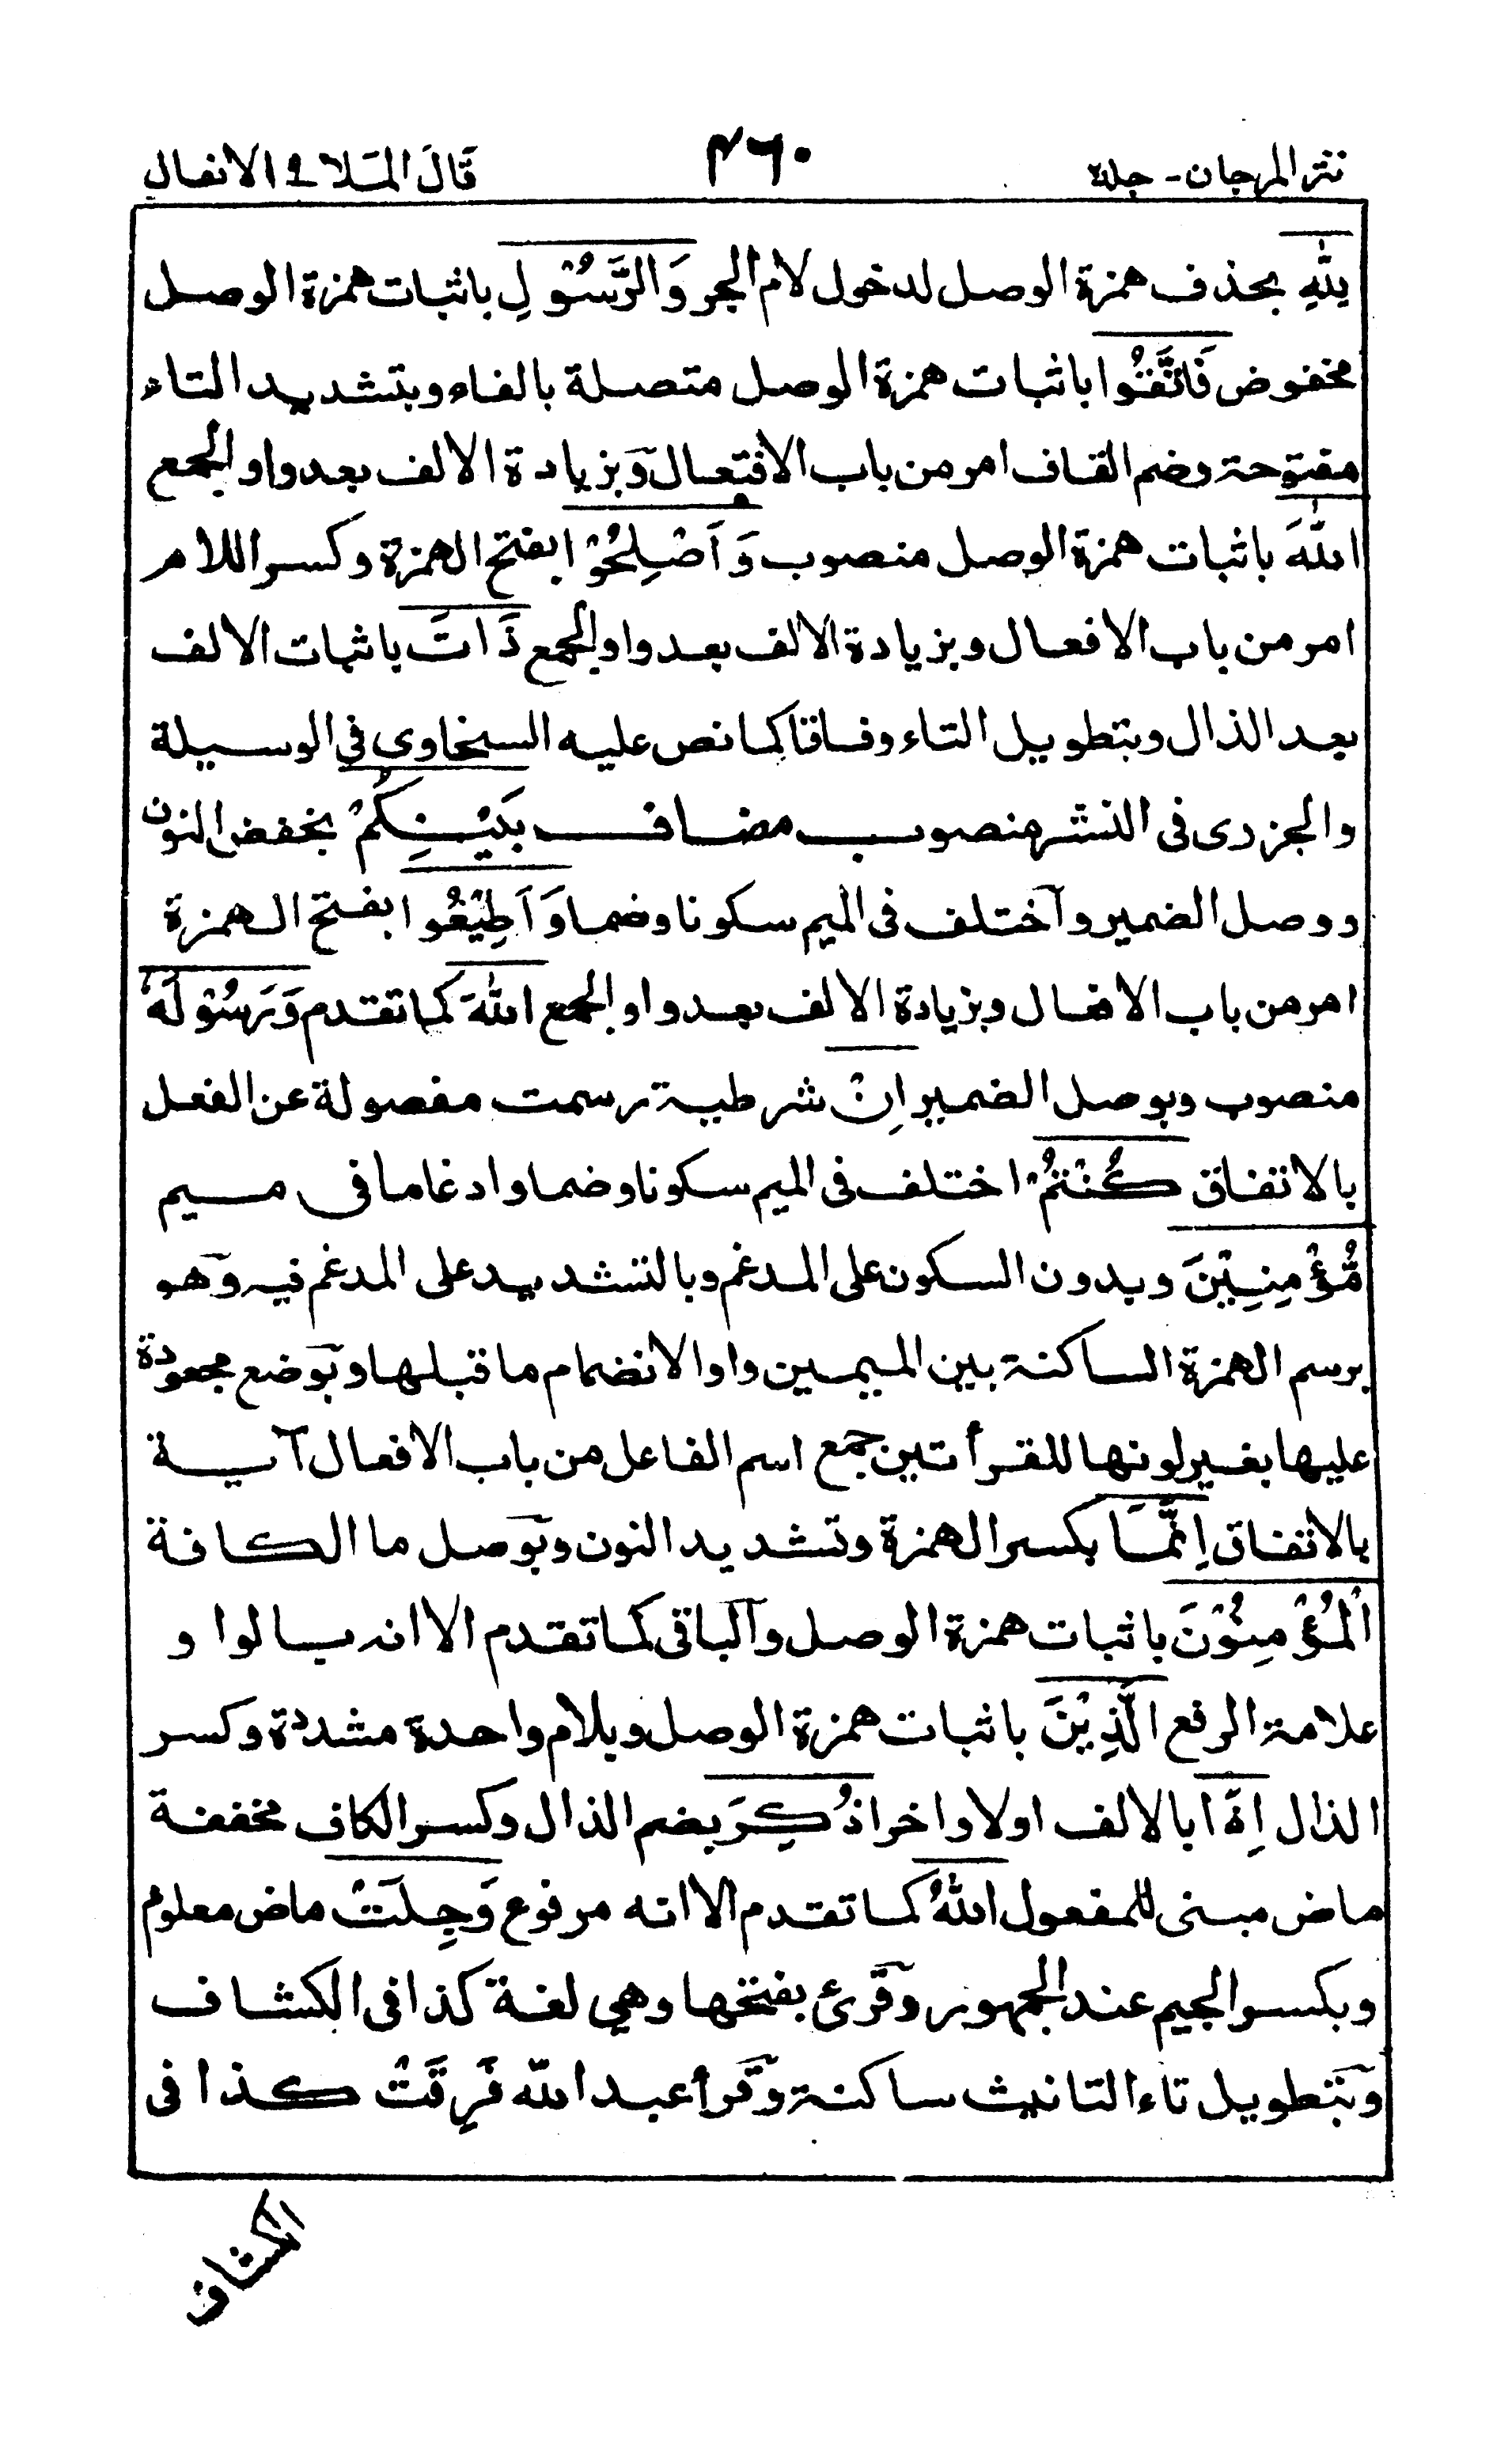 نثر المرجان - جلد ٢
٤٦٠
قَالَ الْمَلَا ٩ الانفال
لِلّٰهِ بحذف همزة الوصل لدخول لام الجر وَالرَّسُوْلِ باثبات همزة الوصل
مخفوض فَاتَّقُوا باثبات همزة الوصل متصلة بالفاء وبتشديد التاء
مفتوحة وضم القاف امر من باب الافتعال وبزيادة الالف بعد واو الجمع
اللّٰهَ باثبات همزة الوصل منصوب وَاَصْلِحُوْا بفتح الهمزة وكسر اللام
امر من باب الافعال وبزيادة الالف بعد واو الجمع ذَاتَ باثبات الالف
بعد الذال وبتطويل التاء وفاقا كما نص عليه السخاوى فى الوسيلة
والجزرى فى النشر منصوب مضاف بَيْنِكُمْ بخفض النون
ووصل الضمير واختلف فى الميم سكونا وضما وَاَطِيْعُوا بفتح الهمزة
امر من باب الافعال وبزيادة الالف بعد واو الجمع اللّٰهَ كما تقدم وَرَسُوْلَهٗ
منصوب وبوصل الضمير اِنْ شرطية رسمت مفصولة عن الفعل
بالاتفاق كُنْتُمْ اختلف فى الميم سكونا وضما وادغاما فى ميم
مُّؤْمِنِيْنَ وبدون السكون على المدغم وبالتشديد على المدغم فيه وهو
برسم الهمزة الساكنة بين الميمين واوا لانضمام ما قبلها وبوضع مجعودة
عليها بغير لونها للقرأتين جمع اسم الفاعل من باب الافعال آية
بالاتفاق اِنَّمَا بكسر الهمزة وتشديد النون وبوصل ما الكافة
الْمُؤْمِنُوْنَ باثبات همزة الوصل والباقى كما تقدم الا انه بالواو
علامة الرفع الَّذِيْنَ باثبات همزة الوصل وبلام واحدة مشددة وكسر
الذال اِذَا بالالف اولا واخرا ذُكِرَ بضم الذال وكسر الكاف مخففة
ماض مبنى للمفعول اللّٰهُ كما تقدم الا انه مرفوع وَجِلَتْ ماض معلوم
وبكسر الجيم عند الجمهور وقرئ بفتحها وهى لغة كذا فى الكشاف
وبتطويل تاء التانيث ساكنة وقرأ عبد الله فَرِقَتْ كذا فى
الكشاف